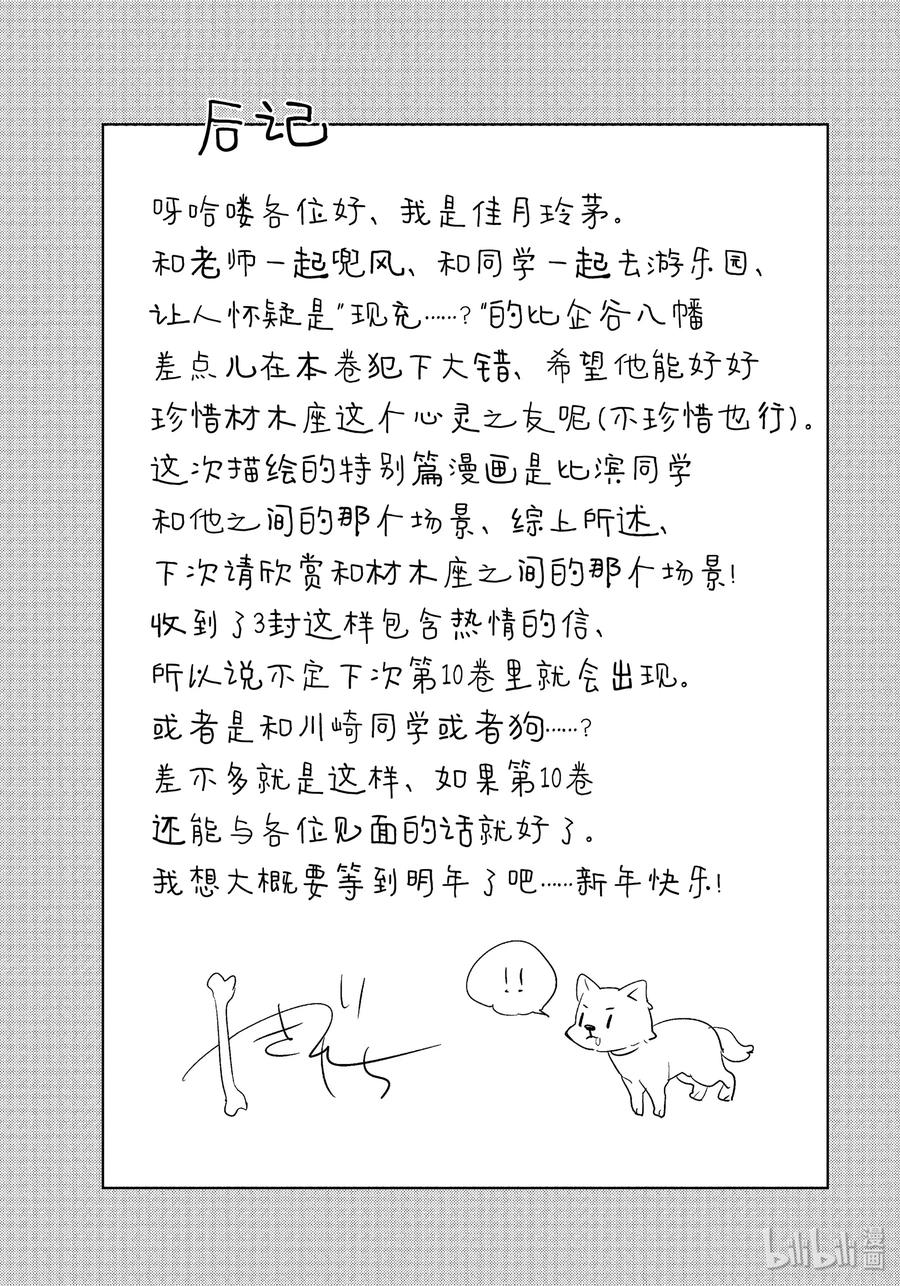 后记
呀哈喽各位好、我是佳月玲茅。
和老师一起兜风、和同学一起去游乐园、
让人怀疑是"现充……?"的比企谷八幡
差点儿在本卷犯下大错、希望他能好好
珍惜材木座这个心灵之友呢(不珍惜也行)。
这次描绘的特别篇漫画是比滨同学
和他之间的那个场景、综上所述、
下次请欣赏和材木座之间的那个场景!
收到了3封这样包含热情的信、
所以说不定下次第10卷里就会出现。
或者是和川崎同学或者狗……?
差不多就是这样、如果第10卷
还能与各位见面的话就好了。
我想大概要等到明年了吧……新年快乐!
!!
bilibili 漫画